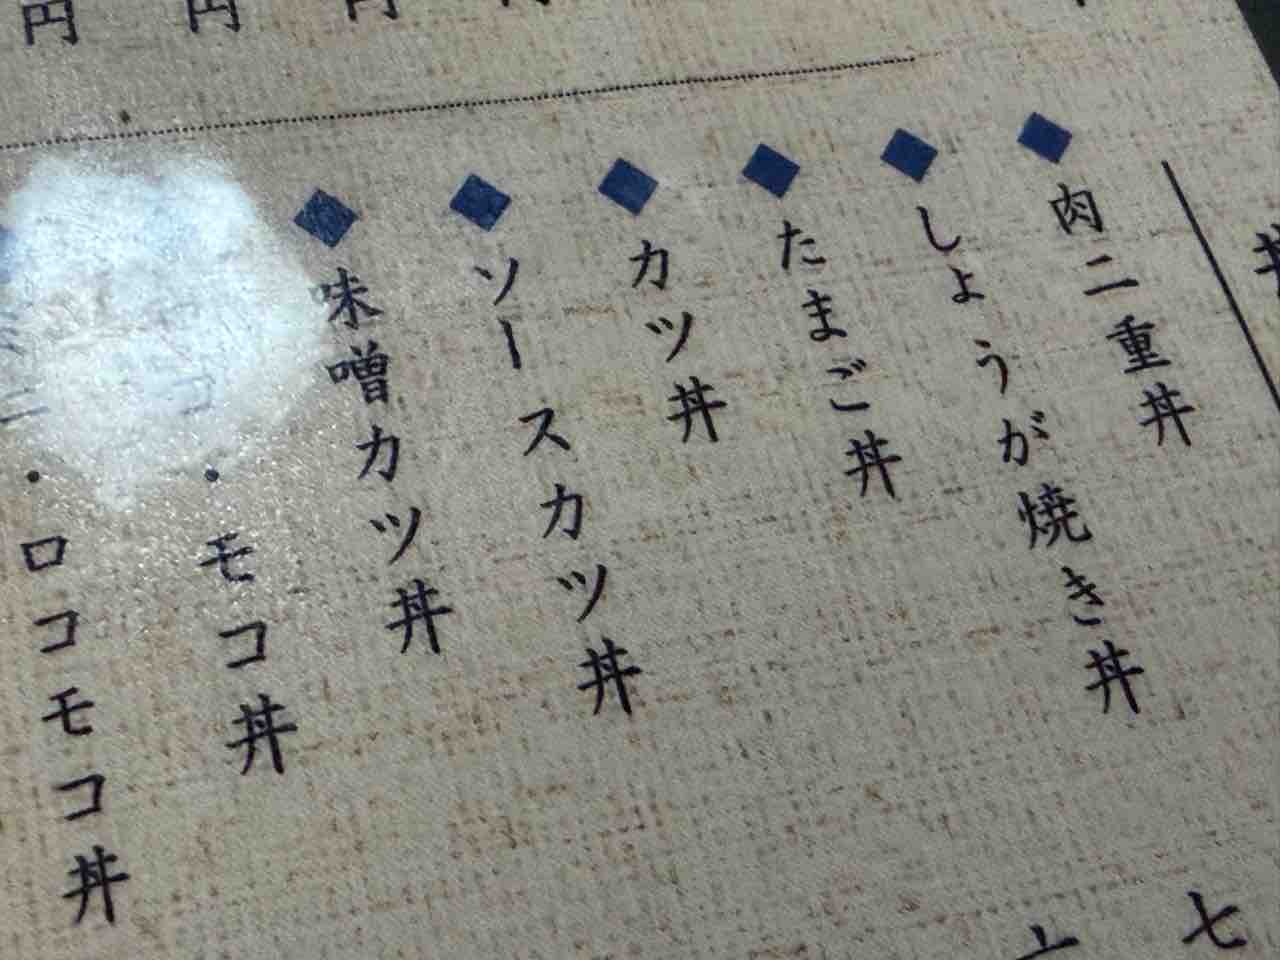 肉二重丼
しょうが焼き丼
たまご丼
カツ丼
ソースカツ丼
味噌カツ丼
コ・モコ丼
ニ・ロコモコ丼
円
円
円
七